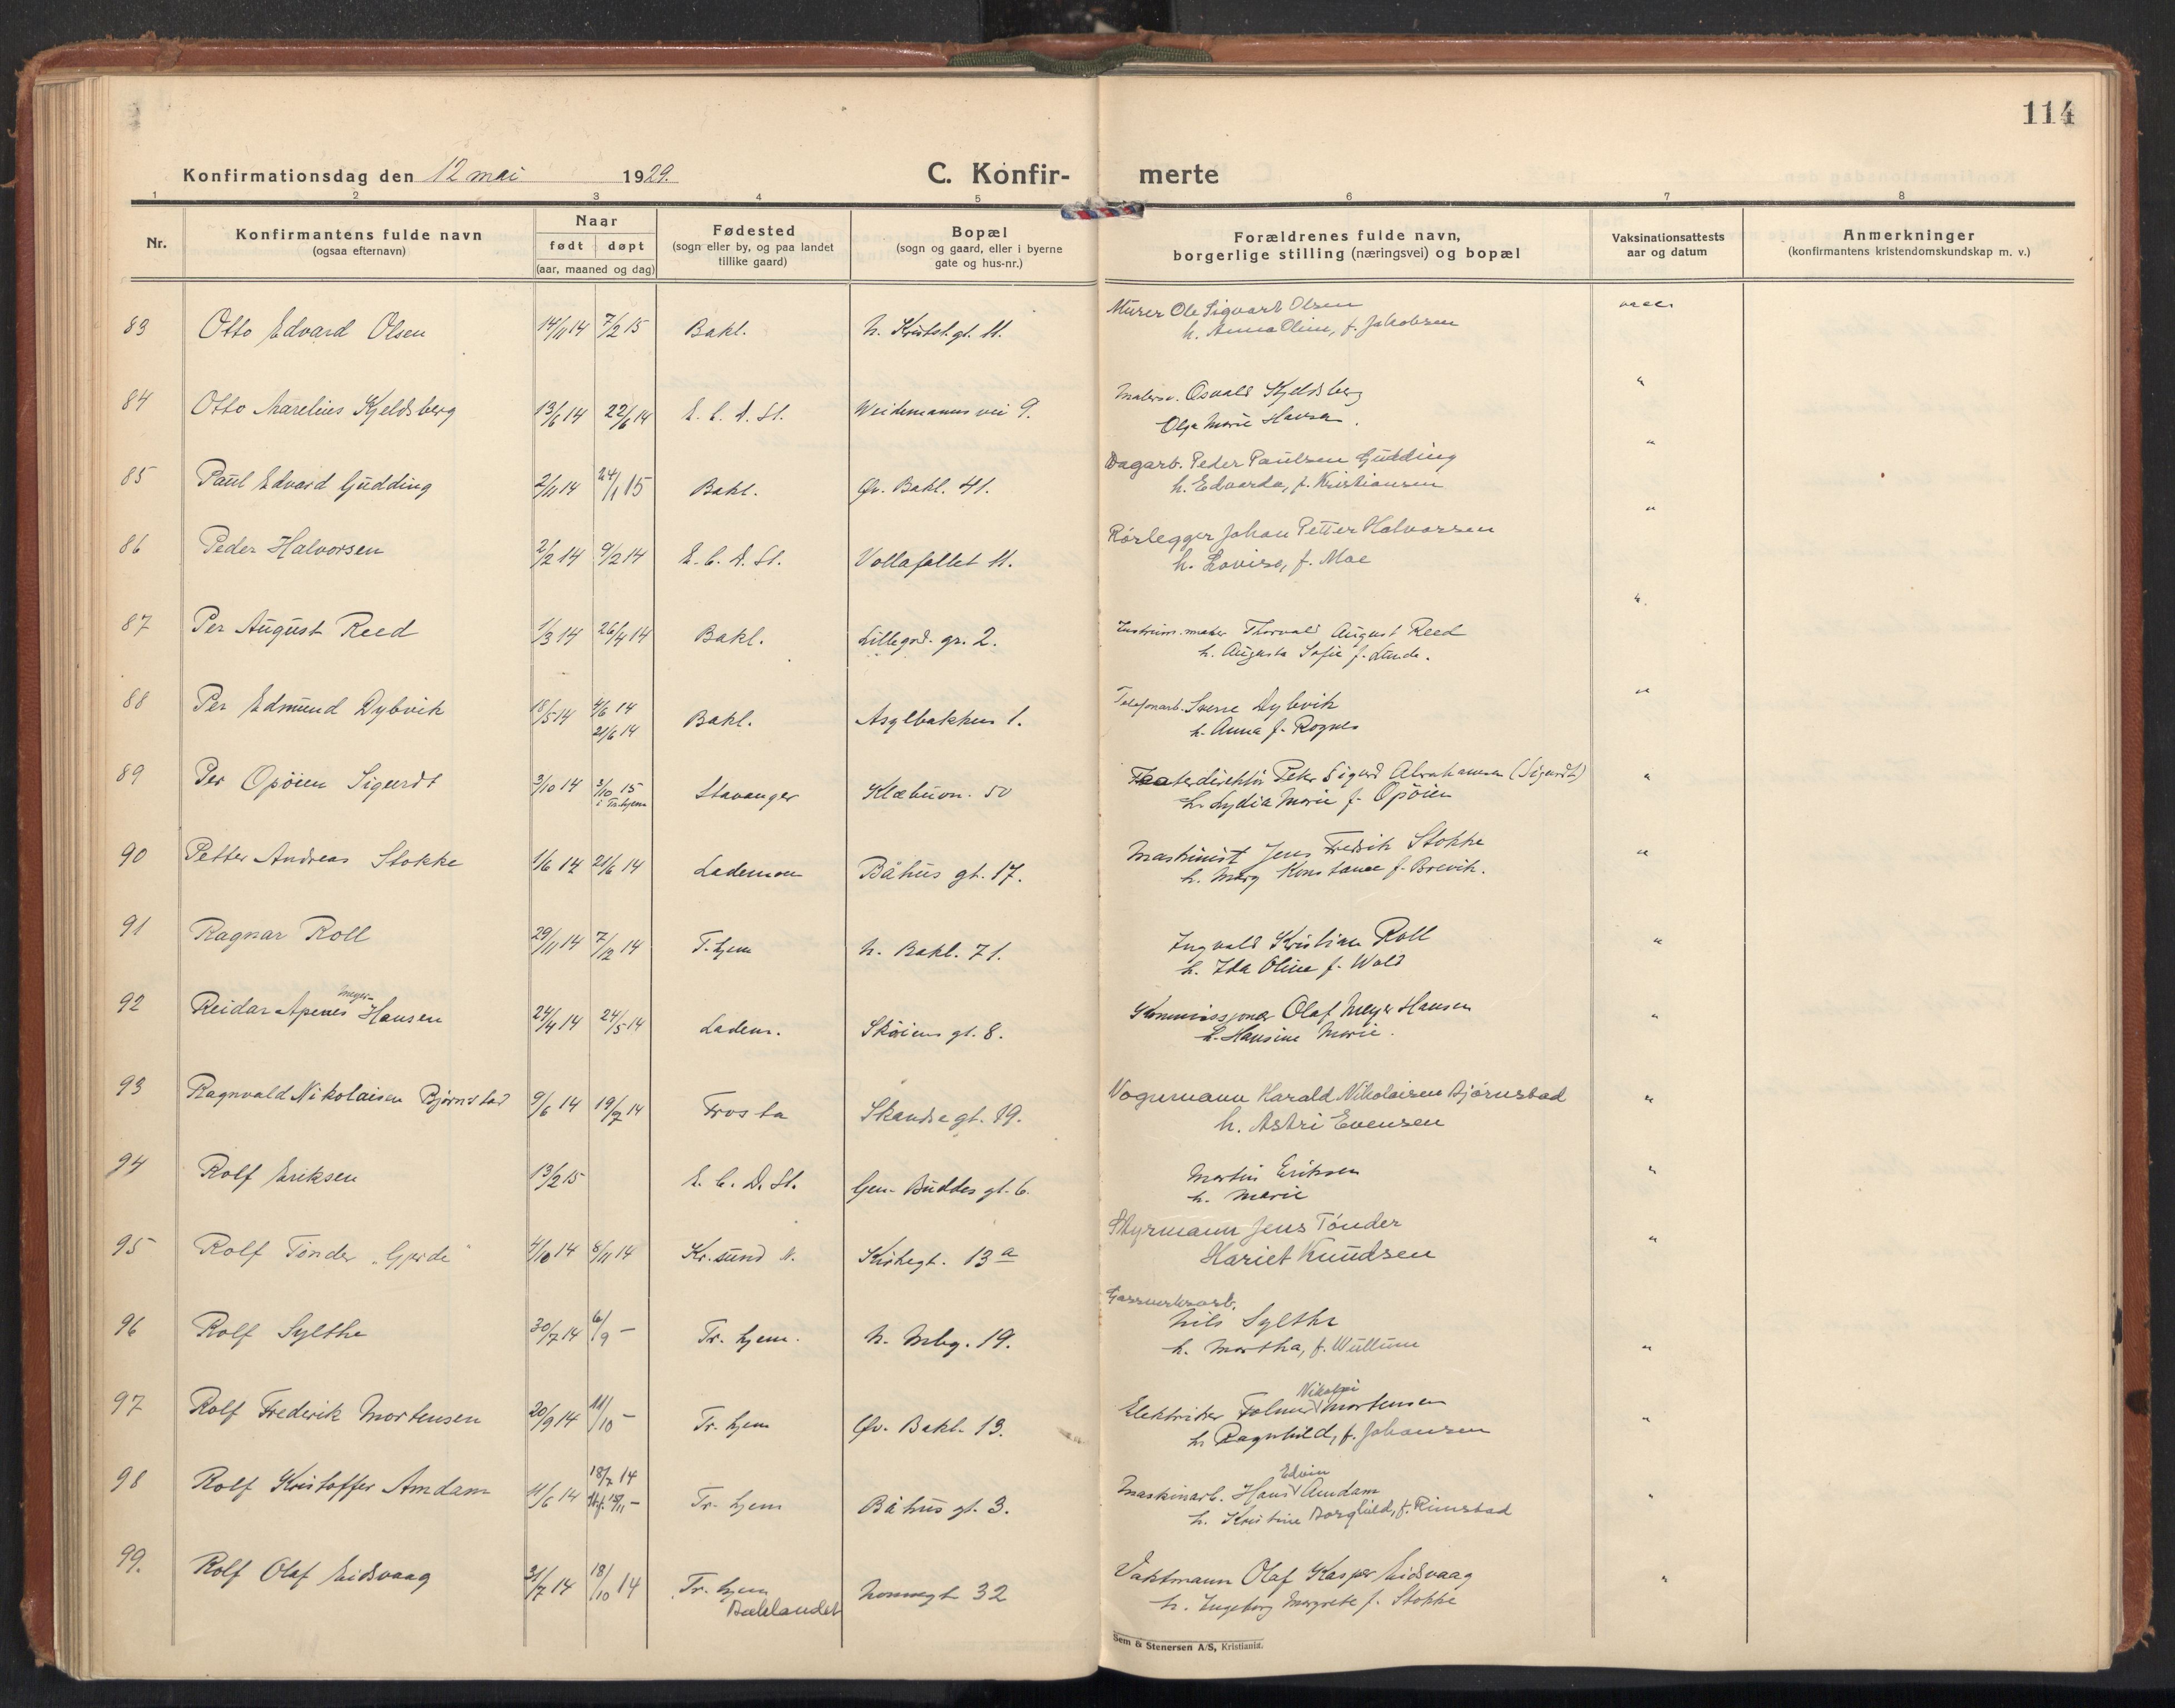 114
Konfirmationsdag den 12 mai 1929. C. Konfir- merte
1 2 3 4 5 6 7 8
Nr. Konfirmantens fulde navn (ogsaa efternavn) Naar født døpt (aar, maaned og dag) Fødested (sogn eller by, og paa landet tillike gaard) Bopæl (sogn og gaard, eller i byerne gate og hus-nr.) Forældrenes fulde navn, borgerlige stilling (næringsvei) og bopæl Vaksinationsattests aar og datum Anmerkninger (konfirmantens kristendomskundskap m. v.)
83 Otto Edvard Olsen 14/11 14 7/2 15 Bakl. N. Kristst. gt. 11. Murer Ole Sigvart Olsen
h. Anna Oline, f. Jakobsen
84 Otto Marelius Kjeldsberg 13/6 14 22/6 14 E. C. D. St. Weidemanns vei 9. Malersv. Osvald Kjeldsberg "
Olga Marie Hansen.
85 Paul Edvard Gudding 2/11 14 24/1 15 Bakl. Øv. Bakl. 41. Dagarb. Peder Paulsen Gudding "
h. Edvarda, f. Kristiansen
86 Peder Halvorsen 2/2 14 9/2 14 E. C. D. St. Vollafallet 11. Rørlegger Johan Petter Halvorsen "
h. Lovise, f. Moe
87 Per August Reed 1/3 14 26/4 14 Bakl. Lillegrd. gr. 2. Instrum. maker Thorvald August Reed "
h. Augusta Sofie f. Lunde.
88 Per Edmund Dybvik 18/5 14 4/6 14 Bakl. Asylbakken 1. Telefonarb. Sverre Dybvik "
21/6 14 h. Anna f. Rognes
89 Per Opøien Sigurdt 3/10 14 3/10 15 Stavanger Klæbuvn. 50 Teaterdirektør Peter Sigurd Abrahamsen (Sigurdt) "
i Tr.hjem h. Lydia Marie f. Opøien
90 Petter Andreas Stokke 1/6 12 21/6 14 Lademoen Båhus gt. 17. Maskinist Jens Fredrik Stokke "
h. Marg Konstance f. Brevik.
91 Ragnar Roll 29/11 14 7/12 14 T.hjem N. Bakl. 71. Ingvald Kristian Roll "
h. Ida Oline f. Wold
92 Reidar Apenes Meyer- Hansen 24/4 14 24/5 14 Ladem. Skøiens gt. 8. Kommissjonær Olaf Meyer Hansen "
h. Hansine Marie.
93 Ragnvald Nikolaisen Bjørnstad 9/6 14 19/7 14 Frosta Skandse gt. 19. Vognmann Harald Nikolaisen Bjørnstad "
h. Astri Evensen
94 Rolf Eriksen 13/2 15 E. C. D. St. Gen. Buddes gt. 6. Martin Eriksen "
h. Marie
95 Rolf Tønder "Gjerde" 4/10 14 8/11 14 Kr.sund N. Kirkegt. 13 a Styrmann Jens Tønder "
Hariet Knudsen
96 Rolf Sylthe 30/7 14 6/9 - Tr. hjem. N. Mbg. 19. Gassverksarb.
Nils Sylthe
h. Martha, f. Wullum "
97 Rolf Frederik Mortensen 20/9 14 11/10 - Tr. hjem Øv. Bakl. 13. Elektriker Folmer Nikolai Mortensen "
h. Ragnhild, f. Johansen
98 Rolf Kristoffer Amdam 11/6 14 18/7 14 Tr. hjem Båhus gt. 3. Maskinarb. Hans Edvin Amdam "
h. Kristine Borghild, f. Rimstad
99. Rolf Olaf Eidsvaag 31/7 14 18/10 14 Tr. hjem Nonnegt 32 Vaktmann Olaf Kasper Eidsvaag "
Baklandet h. Ingeborg Margrete f. Stokke
Sem & Stenersen A/S, Kristiania.